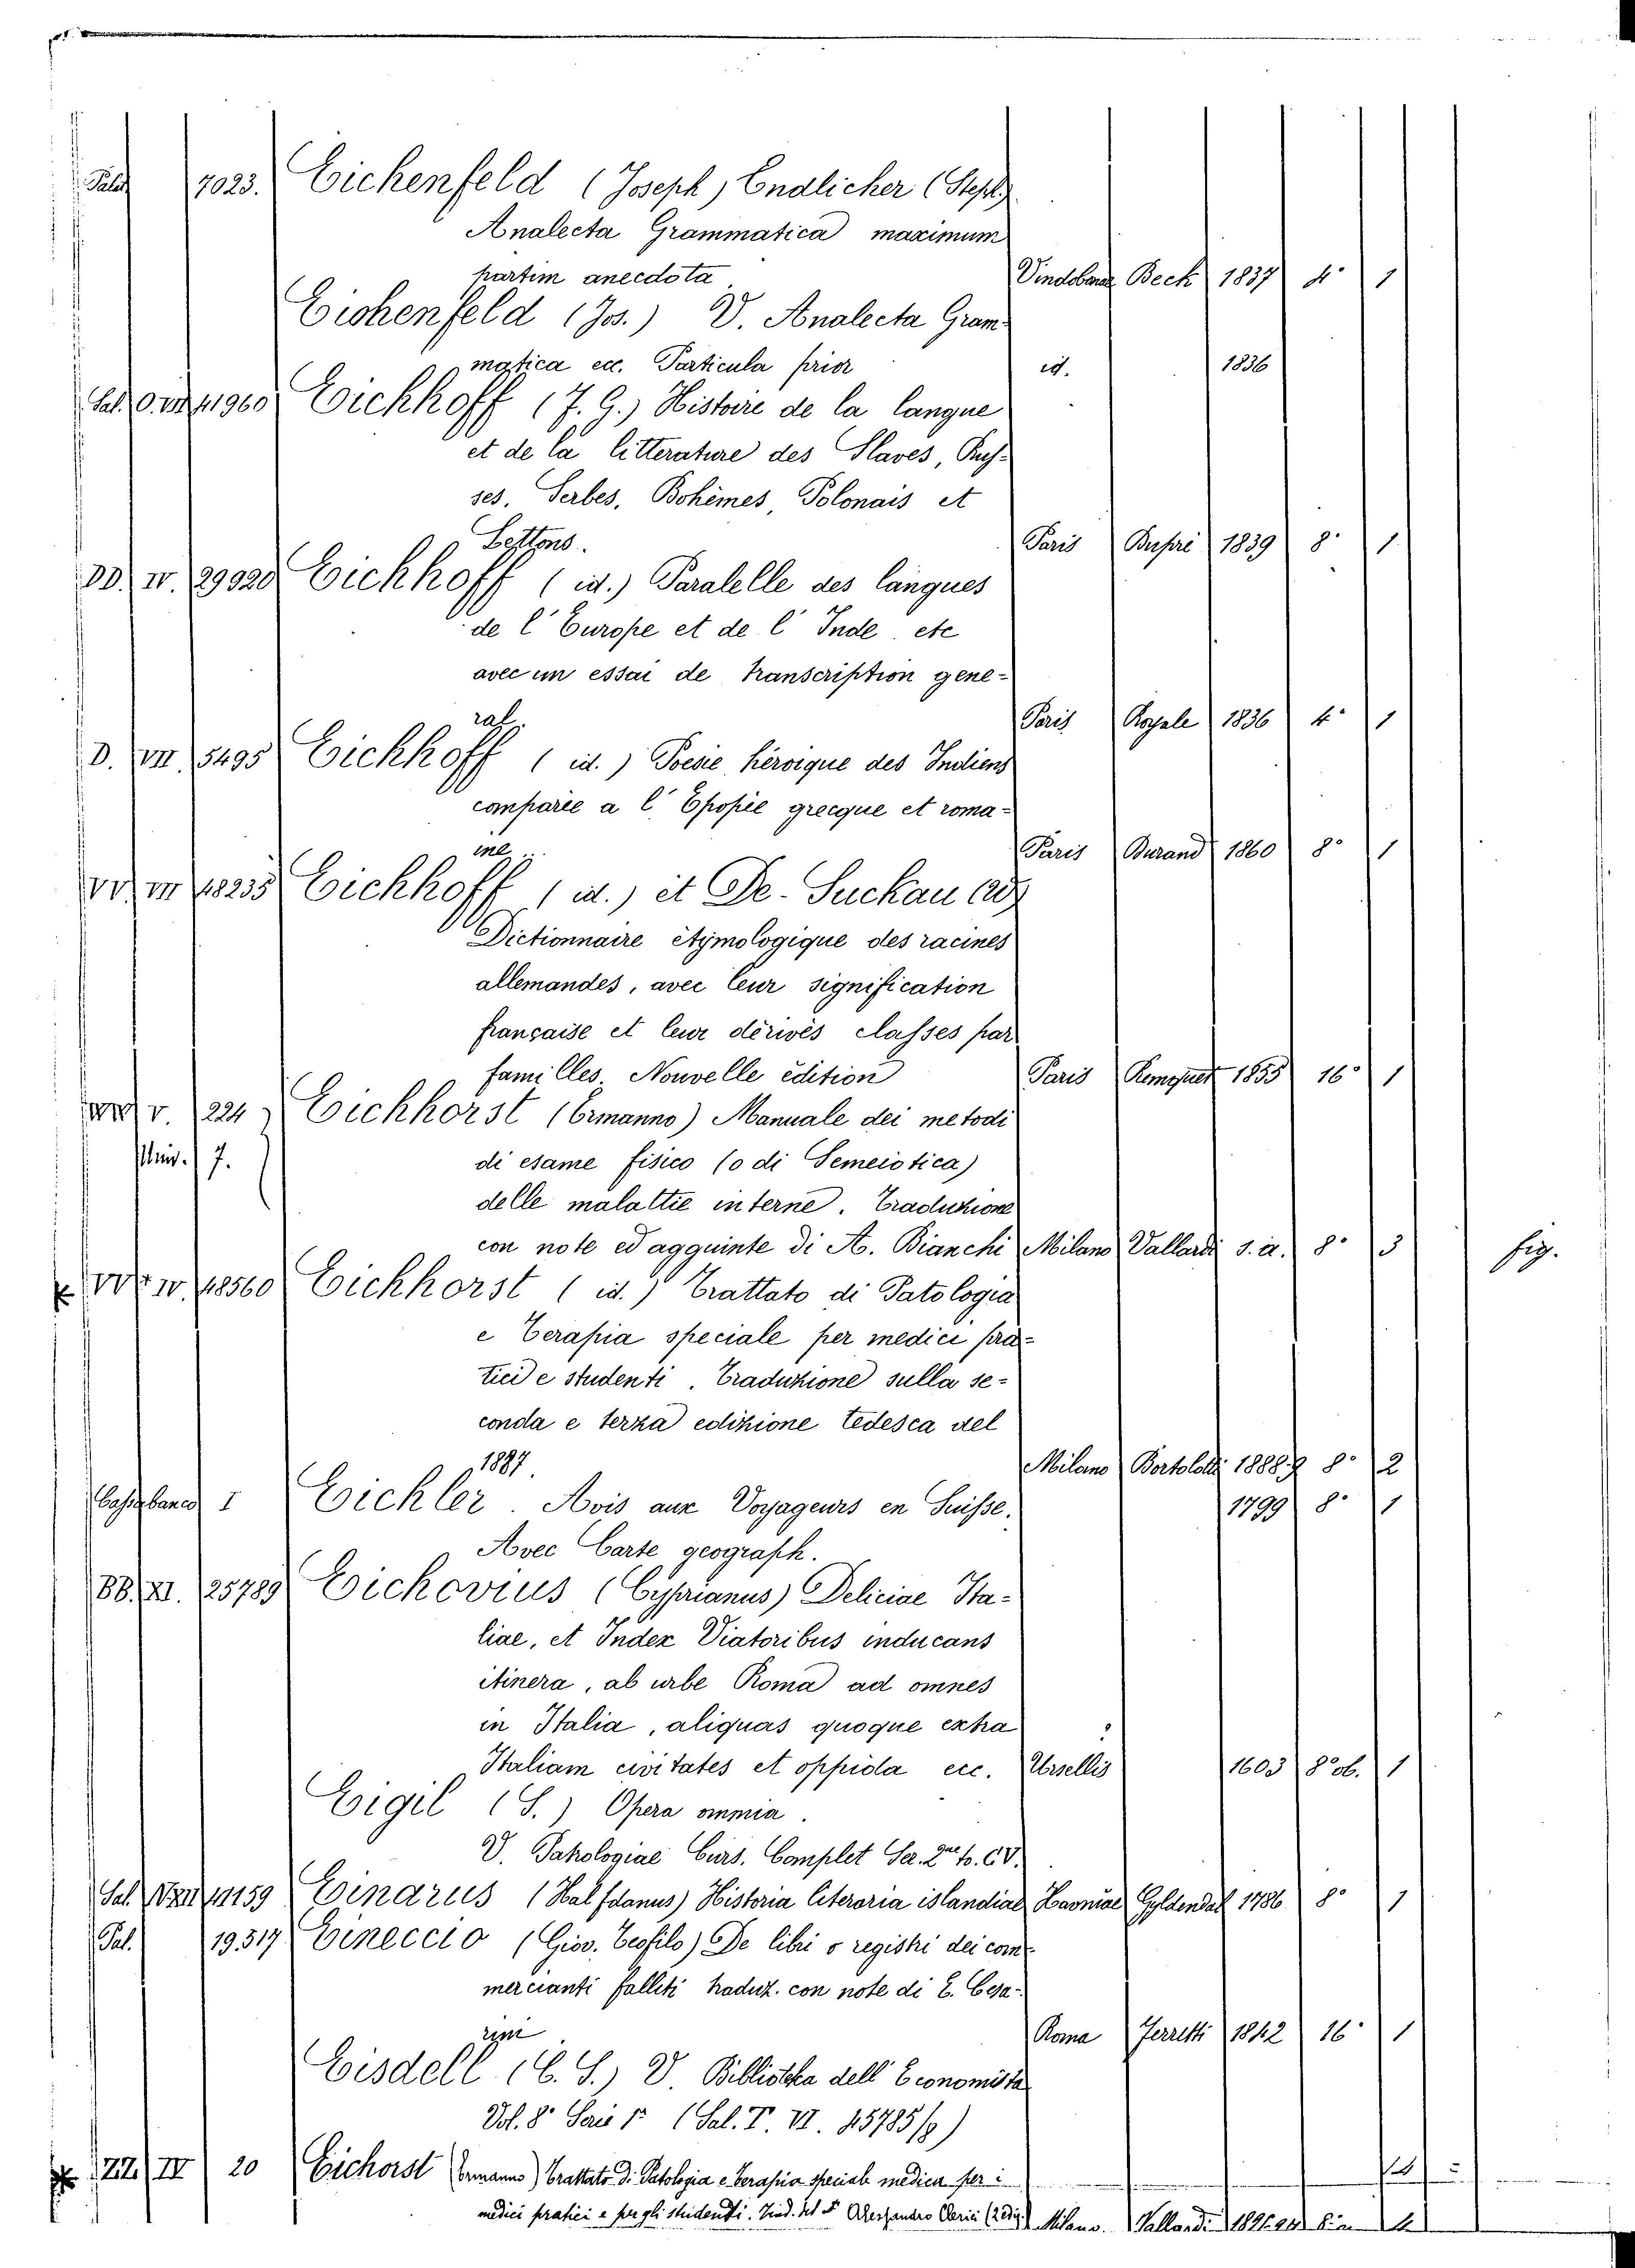 Palat 7023. Eichenfeld (Joseph) Endlicher (Steph)
Analecta Grammatica maximum
partim anecdota Vindobonae Beck 1837 4° 1
Eichenfeld (Jos.) V. Analecta Gram-
matica ecc. Particula prior id. 1836
Sal. O. 41960 Eichhoff (F. G.) Histoire de la langue
et de la litterature des Slaves, Rus-
ses, Serbes, Bohèmes, Polonais et
Lettons. Paris 1839 8° 1
DD. IV. 29920 Eichhoff (id.) Paralelle des langues
de l'Europe et de l'Inde etc
avec un essai de transcription gene-
ral. Paris Royale 1836 4° 1
D. VII. 5495 Eichhoff (id.) Poesie héroique des Indiens
comparée a l'Epopée grecque et roma-
ine Paris Durand 1860 8° 1
18235 Eichhoff (id.) et De-Suckau (W)
Dictionnaire étymologique des racines
allemandes, avec leur signification
française et leur dérivés classes par
familles. Nouvelle édition Paris Remquet 1855 16° 1
V. 224 Eichhorst (Ermanno) Manuale dei metodi
7. di esame fisico (o di Semeiotica)
delle malattie interne. Traduzione
con note ed agguinte di A. Bianchi Milano Vallardi s. a. 8° 3 fig.
IV. 48560 Eichhorst (id.) Trattato di Patologia
e Terapia speciale per medici pra-
tici e studenti. Traduzione sulla se-
conda e terza edizione tedesca del
1887 Milano Bortolotti 1888-9 8° 2
Cassabanco I Eichler. Avis aux Voyageurs en Suisse. 1799 8° 1
Avec Carte geograph.
BB. XI. 25789 Eickovius (Cyprianus) Deliciae Ita-
liae, et Index Viatoribus inducans
itinera, ab urbe Roma ad omnes
in Italia, aliquas quoque extra
Italiam civitates et oppida ecc. Ursellis 1603 8° ob. 1
Eigil (S.) Opera omnia.
V. Patrologiae Curs. Complet Ser. 2ae to. CV.
Sal. 41159 Einarus (Halfdanus) Historia literaria islandiae Havniae Gyldendal 1786 8° 1
Pal. 19.317 Eineccio (Giov. Teofilo) De libri o registri dei com-
mercianti falliti traduz. con note di E. Cesa-
rini Roma Ferretti 1842 16° 1
Eisdell (C. S.) V. Biblioteca dell'Economista
Vol. 8° Serie 1a (Sal. T. VI. 45785/8)
ZZ. IV 20 Eichorst (Ermanno) Trattato di Patologia e Terapia speciale medica per i
medici pratici e per gli studenti. Trad. del Dr Alessandro Clerici (2 ediz.) Milano. Vallardi